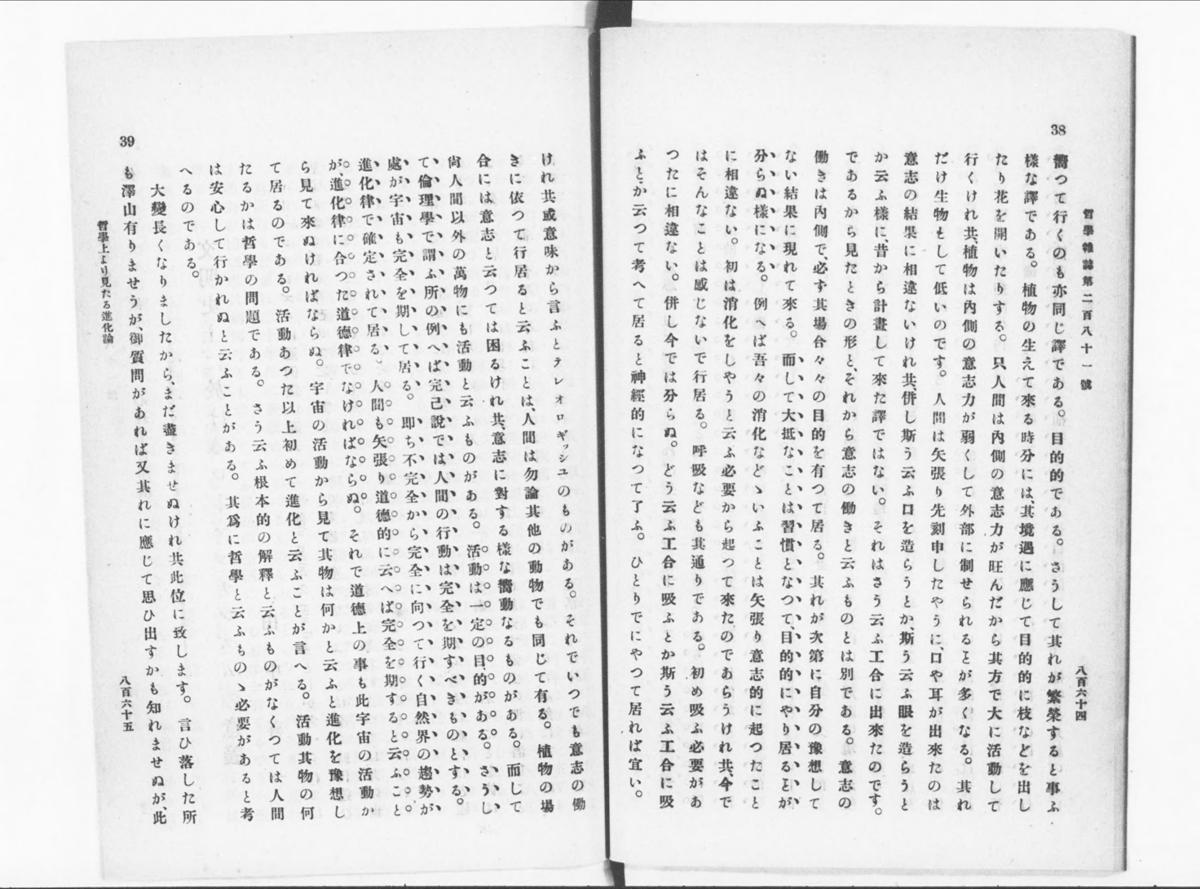 38
哲學雜誌第二百八十一號
八百六十四
衝つて行くのも亦同じ譯である。目的的である。さうして其れが繁榮すると事ふ
樣な譯である。植物の生えて來る時分には、其境遇に應じて目的的に枝などを出し
たり花を開いたりする。只人間は內側の意志力が旺んだから其方で大に活動して
行くけれ共、植物は內側の意志力が弱くして外部に制せられることが多くなる。其れ
だけ生物として低いのです。人間は矢張り先刻申したやうに、口や耳が出來たのは
意志の結果に相違ないけれ共、併し斯う云ふ口を造らうとか、斯う云ふ眼を造らうと
か云ふ樣に昔から計畫して來た譯ではない。それはさう云ふ工合に出來たのです。
であるから見たときの形と、それから意志の働きと云ふものとは別である。意志の
働きは內側で、必ず其場合々々の目的を有つて居る。其れが次第に自分の豫想して
ない結果に現れて來る。而して大抵なことは習慣となつて、目的的にやり居ることが
分らぬ樣になる。例へば吾々の消化などゝいふことは矢張り意志的に起つたこと
に相違ない。初は消化をしやうと云ふ必要から起つて來たのであらうけれ共、今で
はそんなことは感じないで行居る。呼吸なども其通りである。初め吸ふ必要があ
つたに相違ない。併し今では分らぬ。どう云ふ工合に吸ふとか斯う云ふ工合に吸
ふとか云つて考へて居ると神經的になつて了ふ。ひとりでにやつて居れば宜い。
けれ共或意味から言ふとテレオロギッシユのものがある。それでいつでも意志の働
きに依つて行居ると云ふことは、人間は勿論其他の動物でも同じて有る。植物の場
合には意志と云つては困るけれ共、意志に對する樣な衝動なるものがある。而して
尙人間以外の萬物にも活動と云ふものがある。活動は一定の目的がある。さうし
て倫理學で謂ふ所の例へば完己說では人間の行動は完全を期すべきものとする。
處が宇宙も完全を期して居る。卽ち不完全から完全に向つて行く自然界の趨勢が
進化律で確定されて居る。人間も矢張り道德的に云へば完全を期すると云ふこと
が、進化律に合つた道德律でなければならぬ。それで道德上の事も此宇宙の活動か
ら見て來ぬければならぬ。宇宙の活動から見て其物は何かと云ふと進化を豫想し
て居るのである。活動あつた以上初めて進化と云ふことが言へる。活動其物の何
たるかは哲學の問題である。さう云ふ根本的の解釋と云ふものがなくつては人間
は安心して行かれぬと云ふことがある。其爲に哲學と云ふものゝ必要があると考
へるのである。
大變長くなりましたから、まだ盡きませぬけれ共此位に致します。言ひ落した所
も澤山有りませうが、御質問があれば又其れに應じて思ひ出すかも知れませぬが此
39
哲學上より見たる進化論
八百六十五